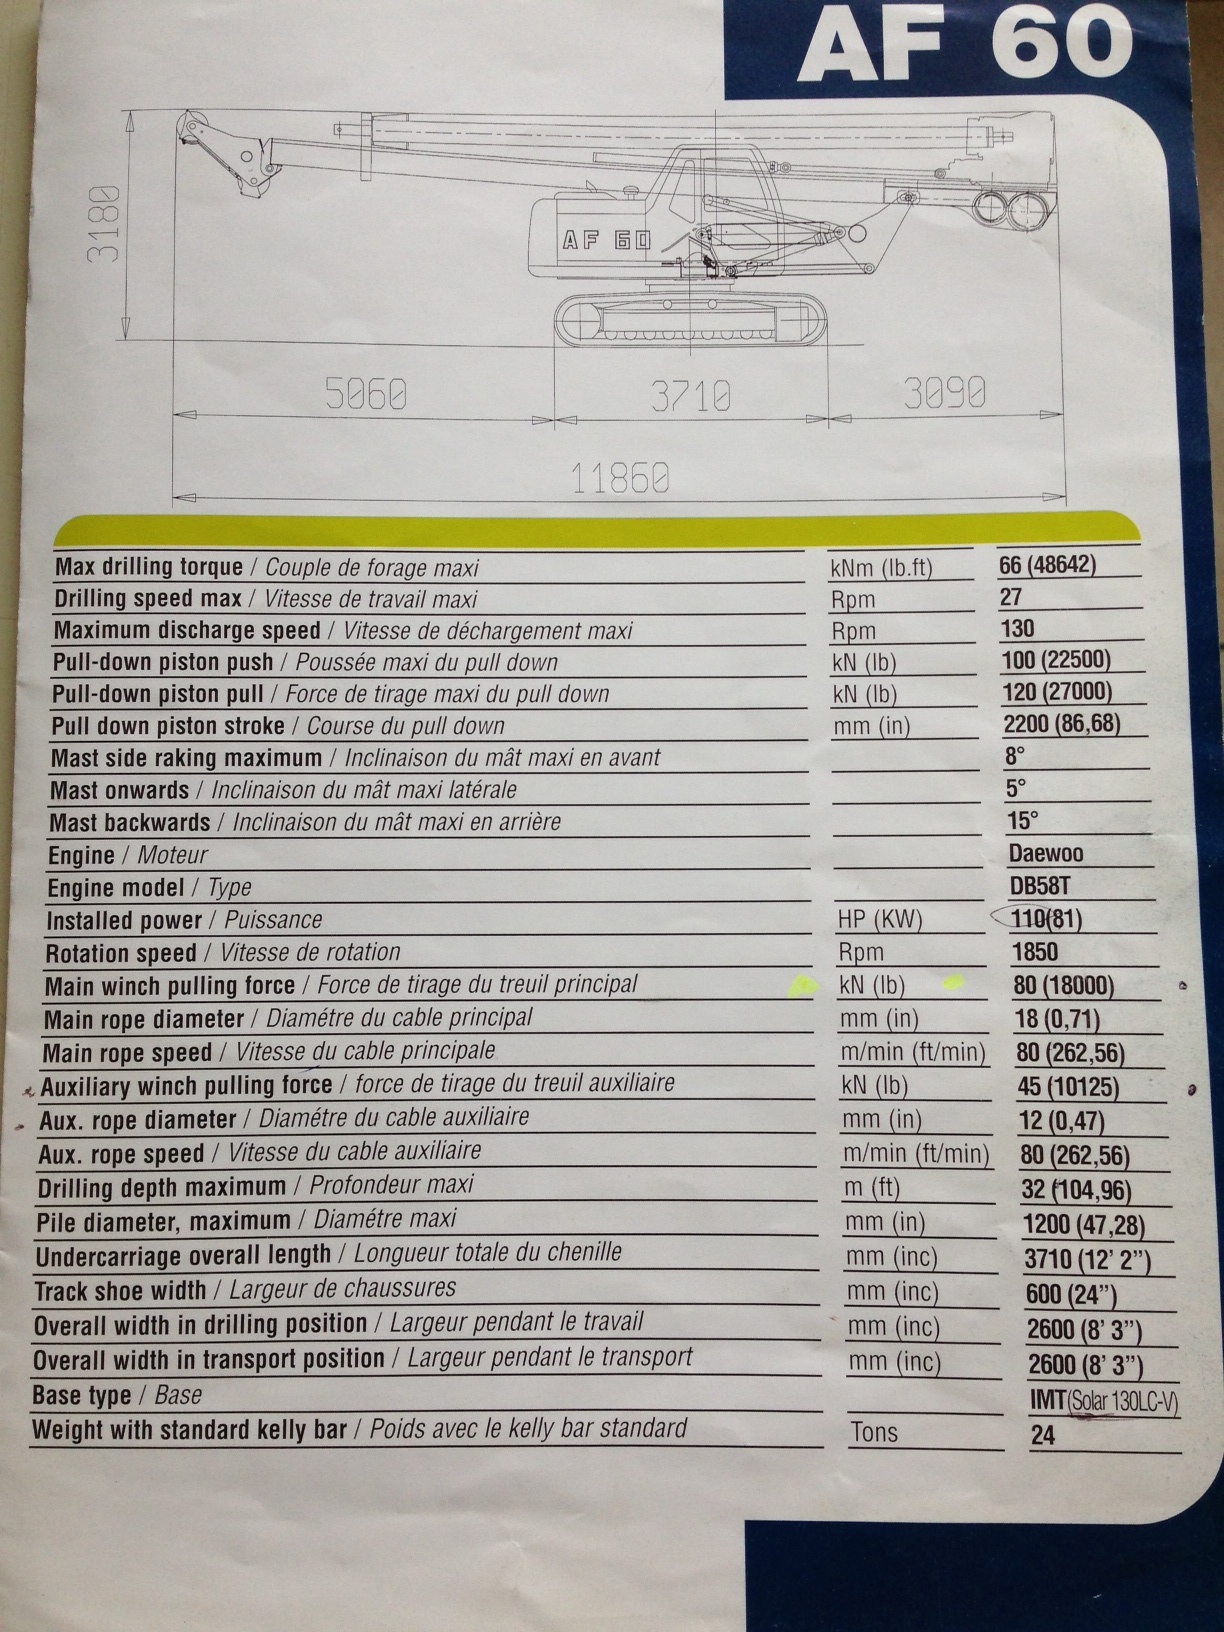 AF 60
3180
AF 60
5060
3710
3090
11860
Max drilling torque / Couple de forage maxi kNm (lb.ft) 66 (48642)
Drilling speed max / Vitesse de travail maxi Rpm 27
Maximum discharge speed / Vitesse de déchargement maxi Rpm 130
Pull-down piston push / Poussée maxi du pull down kN (lb) 100 (22500)
Pull-down piston pull / Force de tirage maxi du pull down kN (lb) 120 (27000)
Pull down piston stroke / Course du pull down mm (in) 2200 (86,68)
Mast side raking maximum / Inclinaison du mât maxi en avant 8°
Mast onwards / Inclinaison du mât maxi latérale 5°
Mast backwards / Inclinaison du mât maxi en arrière 15°
Engine / Moteur Daewoo
Engine model / Type DB58T
Installed power / Puissance HP (KW) 110(81)
Rotation speed / Vitesse de rotation Rpm 1850
Main winch pulling force / Force de tirage du treuil principal kN (lb) 80 (18000)
Main rope diameter / Diamétre du cable principal mm (in) 18 (0,71)
Main rope speed / Vitesse du cable principale m/min (ft/min) 80 (262,56)
Auxiliary winch pulling force / force de tirage du treuil auxiliaire kN (lb) 45 (10125)
Aux. rope diameter / Diamétre du cable auxiliaire mm (in) 12 (0,47)
Aux. rope speed / Vitesse du cable auxiliaire m/min (ft/min) 80 (262,56)
Drilling depth maximum / Profondeur maxi m (ft) 32 (104,96)
Pile diameter, maximum / Diamétre maxi mm (in) 1200 (47,28)
Undercarriage overall length / Longueur totale du chenille mm (inc) 3710 (12' 2")
Track shoe width / Largeur de chaussures mm (inc) 600 (24")
Overall width in drilling position / Largeur pendant le travail mm (inc) 2600 (8' 3")
Overall width in transport position / Largeur pendant le transport mm (inc) 2600 (8' 3")
Base type / Base IMT(Solar 130LC-V)
Weight with standard kelly bar / Poids avec le kelly bar standard Tons 24